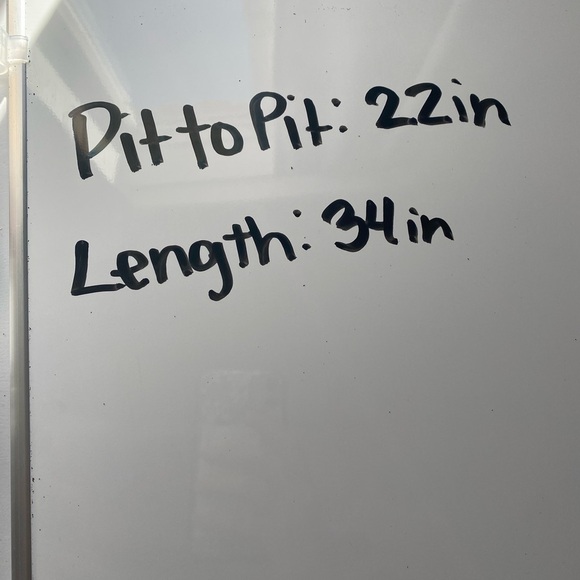 Pit to Pit: 22in
Length: 34in